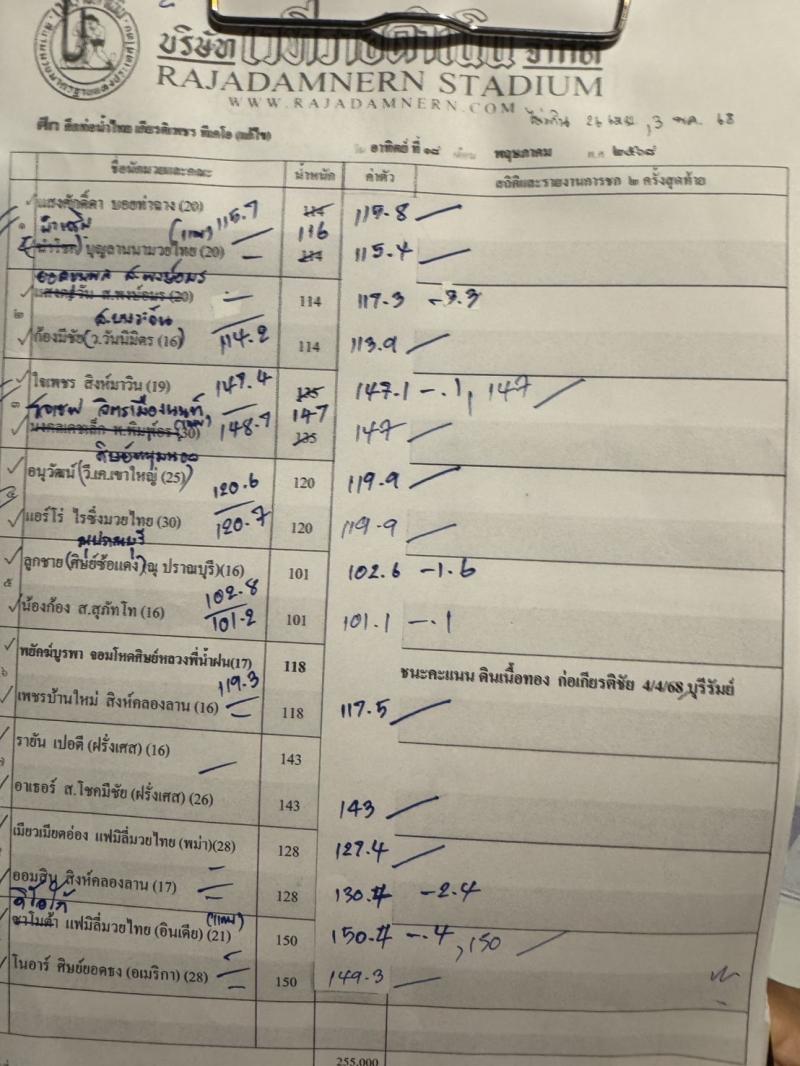 บริษัท เวทีราชดำเนิน จำกัด
RAJADAMNERN STADIUM
WWW.RAJADAMNERN.COM
26 เมย , 3 พ.ค. 68
ศึก ศึกท่อน้ำไทย เกียรติเพชร ทีเคโอ (แก้ไข)
อาทิตย์ ที่ ๑๘ เดือน พฤษภาคม พ.ศ ๒๕๖๘
ชื่อนักมวยและคณะ น้ำหนัก ค่าตัว สถิติและรายงานการชก ๒ ครั้งสุดท้าย
แสงศักดิ์ดา บอยท่าฉาง (20) 115.8
(แทน) 116.7 116
๑ บุญลานนามวยไทย (20) 115.4
(20) 114 117.3 -3.3
๒
ก้องมีชัย (ว.วันนิมิตร (16) 114.2 114 113.9
ใจเพชร สิงห์มาวิน (19) 147.4 135 147.1 -.1, 147
๓ จิตรเมืองนนท์ 147
(30) 148.7 135 147
อนุวัฒน์ (วี.เค.เขาใหญ่ (25) 120.6 120 119.9
๔
แอร์โร่ ไรซิ่งมวยไทย (30) 120.7 120 119.9
ลูกชาย (ศิษย์ช้อแดง) ณุ ปราณบุรี)(16) 101 102.6 -1.6
๕ 102.8
น้องก้อง ส.สุภัทโท (16) 101.2 101 101.1 -.1
พยัคฆ์บูรพา จอมโหดศิษย์หลวงพี่น้ำฝน(17) 118
๖ 119.3 ชนะคะแนน ดินเนื้อทอง ก่อเกียรติชัย 4/4/68 บุรีรัมย์
เพชรบ้านใหม่ สิงห์คลองลาน (16) 118 117.5
รายัน เปอดี (ฝรั่งเศส) (16) 143
๗
อาเธอร์ ส.โชคมีชัย (ฝรั่งเศส) (26) 143 143
เมียวเมียดอ่อง แฟมิลี่มวยไทย (พม่า)(28) 128 127.4
ออมสิน สิงห์คลองลาน (17) 128 130.4 -2.4
(แทน)
ซาโมต้า แฟมิลี่มวยไทย (อินเดีย) (21) 150 150.4 -.4 , 150
โนอาร์ ศิษย์ยอดธง (อเมริกา) (28) 150 149.3
255,000